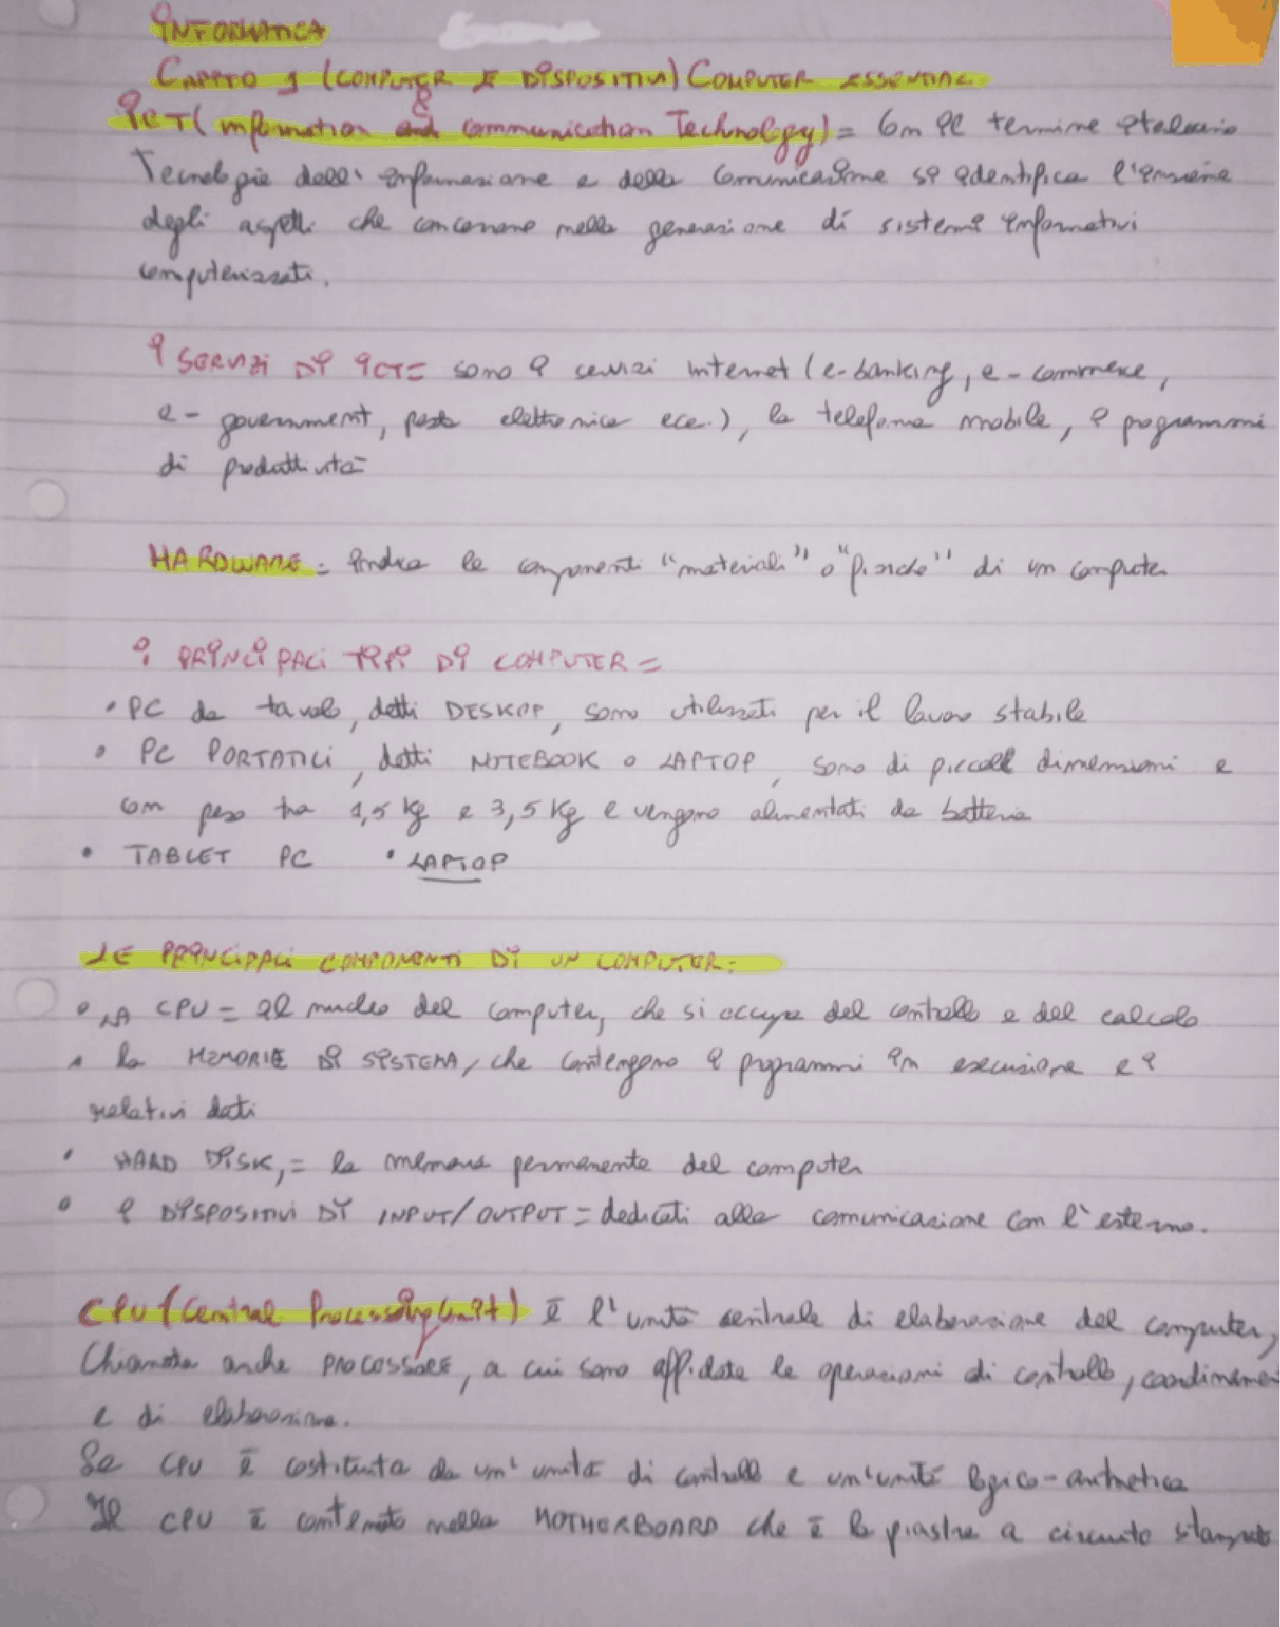 INFORMATICA
CAPITO 1 (COMPUTER E DISPOSITIVI) COMPUTER ESSENTIAL
ICT (information and communication Technology) = Con il termine italiano
Tecnologie dell'informazione e della comunicazione si identifica l'insieme
degli aspetti che concorrono nella generazione di sistemi informativi
computerizzati.
I SERVIZI DI ICT = sono i servizi internet (e-banking, e-commerce,
e-government, posta elettronica ecc.), la telefonia mobile, i programmi
di produttività
HARDWARE = Indica le componenti "materiali" o "fisiche" di un computer
I PRINCIPALI TIPI DI COMPUTER =
• PC da tavolo, detti DESKOP, sono utilizzati per il lavoro stabile
• PC PORTATILI, detti NOTEBOOK o LAPTOP, sono di piccole dimensioni e
con peso tra 1,5 kg e 3,5 kg e vengono alimentati da batteria
• TABLET PC • LAPTOP
LE PRINCIPALI COMPONENTI DI UN COMPUTER =
• LA CPU = Il nucleo del computer, che si occupa del controllo e del calcolo
• la MEMORIE DI SISTEMA, che contengono i programmi in esecuzione e i
relativi dati
• HARD DISK, = la memoria permanente del computer
• I DISPOSITIVI DI INPUT/OUTPUT = dedicati alla comunicazione con l'esterno.
CPU (Central Processing Unit) è l'unità centrale di elaborazione del computer,
Chiamata anche PROCESSORE, a cui sono affidate le operazioni di controllo,
e di elaborazione.
La CPU è costituita da un'unità di controllo e un'unità logico-aritmetica
Il CPU è contenuto nella MOTHERBOARD che è la piastra a circuito stampato